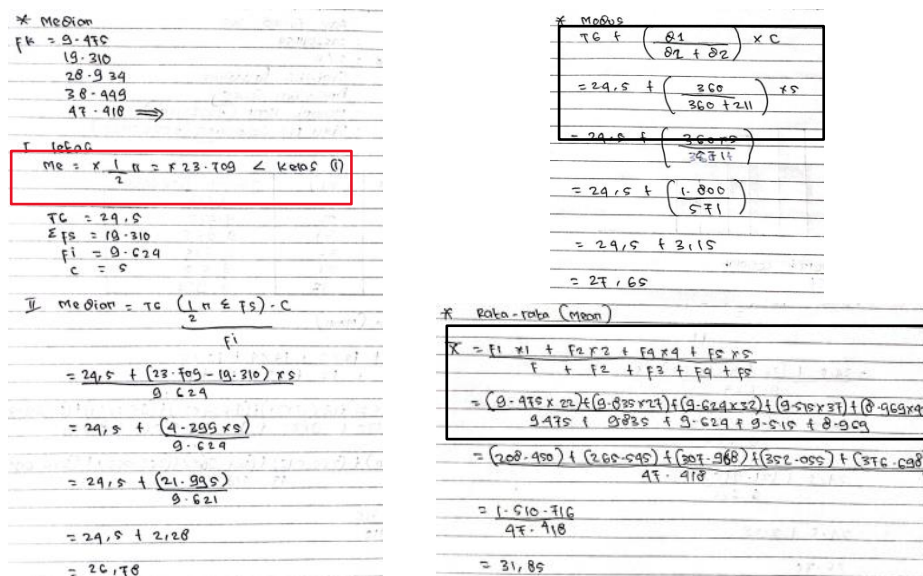 * Median
FK = 9.475
19.310
28.934
38.449
47.418 ⇒
I letak
Me = x 1/2 n = x 23.709 < kelas (i)
TB = 29,5
Σ Fs = 19.310
Fi = 9.624
C = 5
II Median = TB (1/2 n Σ Fs) . C
Fi
= 29,5 + (23.709 - 19.310) x 5
9.624
= 29,5 + (4.299 x 5)
9.624
= 29,5 + (21.995)
9.621
= 29,5 + 2,28
= 26,78
* Modus
TB + (∂1 / ∂1 + ∂2) x C
= 29,5 + (360 / 360 + 211) x 5
= 29,5 + (360 x 5
= 29,5 + (1.800 / 571)
= 29,5 + 3,15
= 27,65
* Rata-rata (Mean)
X = F1 x1 + F2 x 2 + F4 x 4 + F5 x 5
F + F2 + F3 + F4 + F5
= (9.475 x 22) + (9.835 x 27) + (9.624 x 32) + (9.515 x 37) + (8.969 x 4
9475 + 9835 + 9.624 + 9.515 + 8.969
= (208.450) + (265.545) + (307.968) + (352.055) + (376.698
47.418
= 1.510.716
47.418
= 31,85